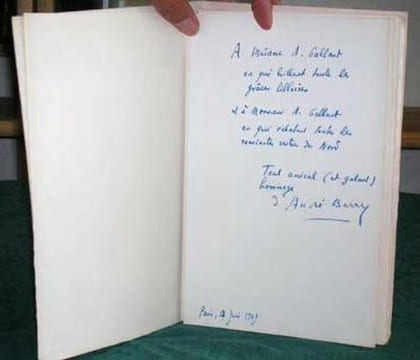 A Madame A. Gallant
en qui brillent toutes les
grâces lilloises
& à Monsieur A. Gallant
en qui toutes les
vertus du Nord
Tout amical (et galant)
hommage
d'André Berry
Paris, juin 1949